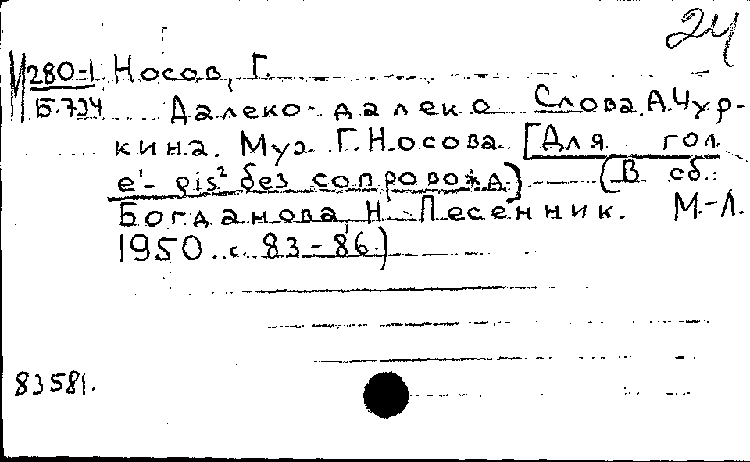 24
М280-1 Носов, Г.
Б.734 Далеко-далеко Слова А.Чур-
кина. Муз. Г.Носова. [Для гол.
e¹- gis² без сопровожд.] (В сб.:
Богданова, Н. Песенник. М-Л.
1950. с. 83-86.)
83581.